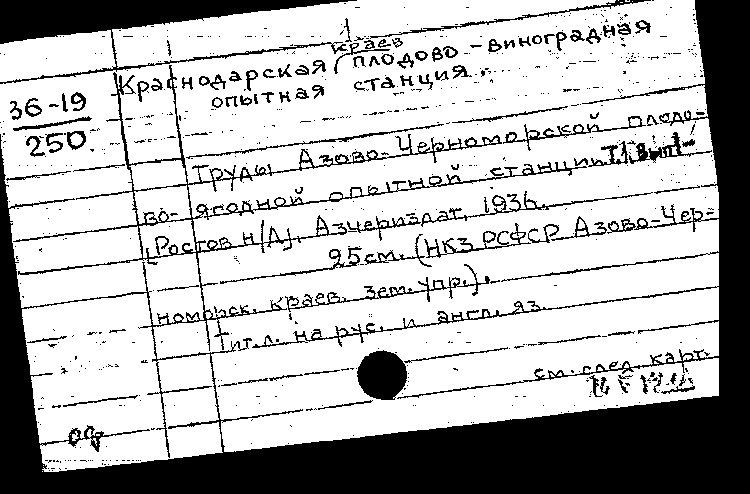 краев
Краснодарская плодово-виноградная
опытная станция.
36-19
250.
Труды Азово-Черноморской плодо-
во-ягодной опытной станции. Т.1, Вып1-
[Ростов н/Д], Азчериздат, 1936.
25см. (НКЗ РСФСР Азово-Чер-
номорск. краев. зем. упр.).
Тит.л. на рус. и англ. яз.
см. след. карт.